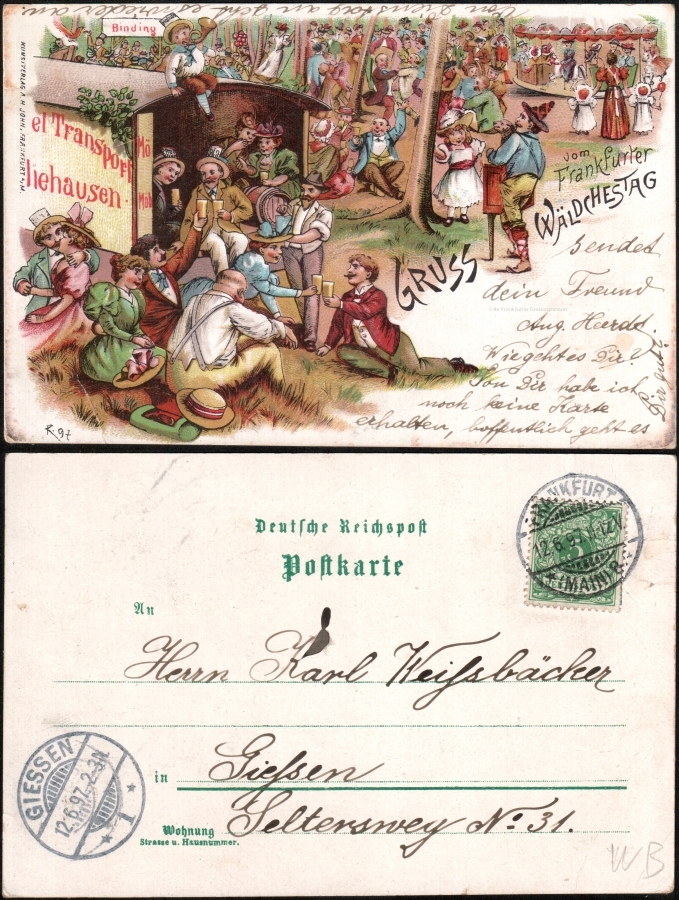 von Dienstag an geht es wieder an
Binding
KUNSTVERLAG A. H. JOHN, FRANKFURT a/M.
el Transport
Mö
liehausen.
Möb
GRUSS
vom
Frankfurter
WÄLDCHESTAG
sendet
dein Freund
Aug. Heerdt
Wie geht es Dir?
Von Dir habe ich
noch keine Karte
erhalten, hoffentlich geht es
Dir gut?
R. 97
Deutsche Reichspost
Postkarte
An
Herrn Karl Weißbäcker
in Giessen
Wohnung Seltersweg No. 31.
Strasse u. Hausnummer.
FRANKFURT
12.6.97
(MAIN)
GIESSEN
12.6.97. 2-3N.
1
WB